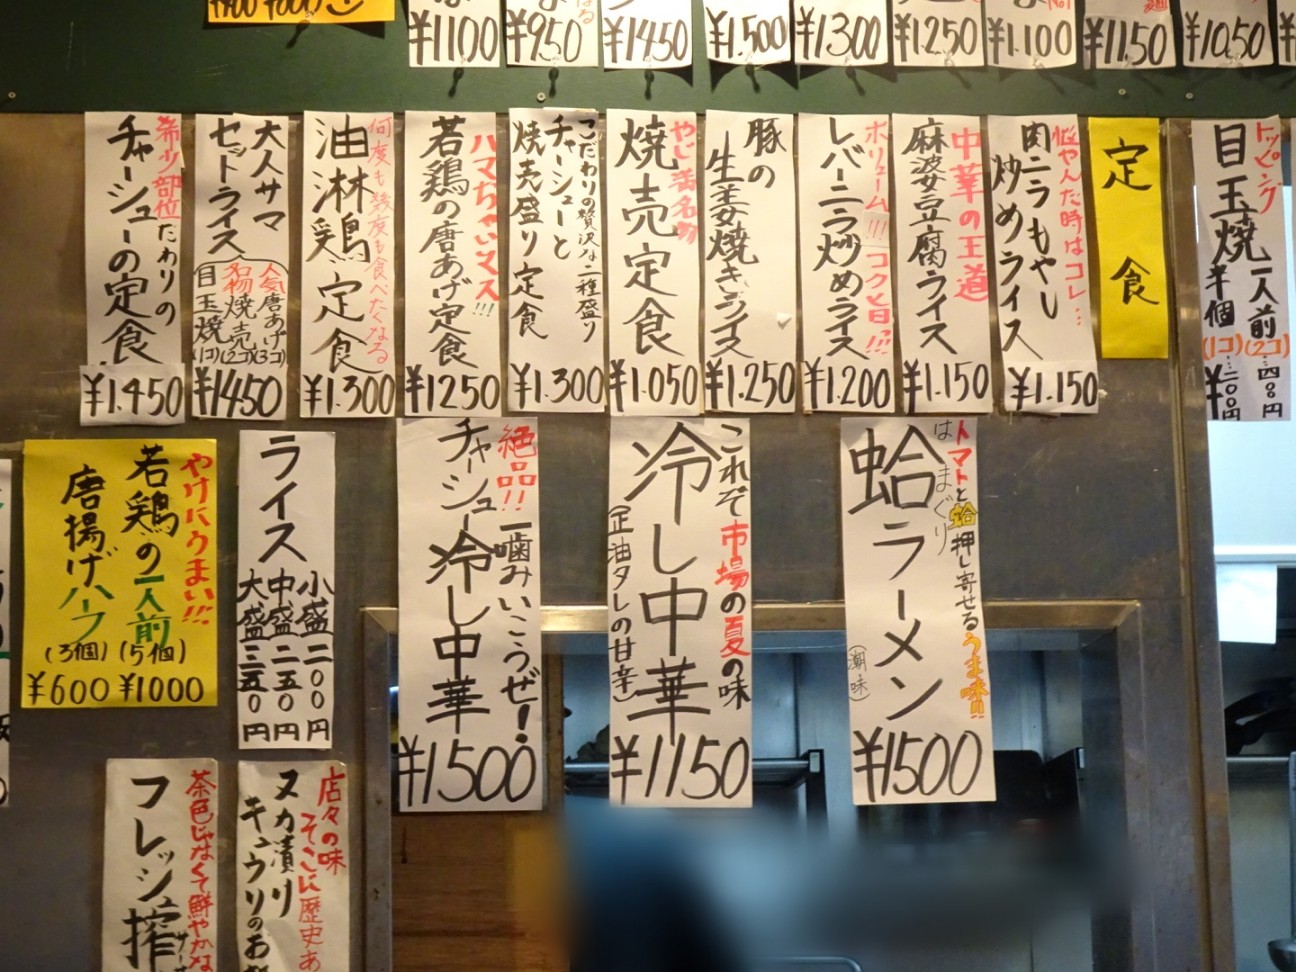 ¥1100
¥950
¥1450
¥1.500
¥1.300
¥1.250
¥1.100
¥1150
¥1050
トッピング
目玉焼
一人前(2コ)…四〇〇円
半個(1コ)…二〇〇円
定食
悩やんだ時はコレ…
肉ニラもやし
炒めライス
¥1.150
中華の王道
麻婆豆腐ライス
¥1.150
ボリューム!!! コク旨っ!!!
レバーニラ炒めライス
¥1.200
豚の
生姜焼きライス
¥1.250
やじ満名物
焼売定食
¥1.050
こだわりの贅沢な二種盛り
チャーシューと
焼売盛り定食
¥1.300
ハマちゃいマス!!!
若鶏の唐あげ定食
¥1250
何度も幾度も食べたくなる
油淋鶏定食
¥1.300
大人サマ
セットライス
人気唐あげ(3コ)
名物焼売(2コ)
目玉焼(1コ)
¥1450
希少部位たわりの
チャーシューの定食
¥1.450
トマトと蛤押し寄せるうま味!!
はまぐり
蛤ラーメン
(潮味)
¥1500
これぞ市場の夏の味
冷し中華
(正油タレの甘辛)
¥1150
絶品!!一噛みいこうぜ!
チャーシュー冷し中華
¥1500
ライス
小盛二〇〇円
中盛二五〇円
大盛三五〇円
やけにウまい!!!
若鶏の一人前
唐揚げハーフ
(5個)
(3個)
¥1000
¥600
店々の味
そこに歴史あ
ヌカ漬り
キュウリのお
茶色じゃなくて鮮やかな
フレッシュ搾